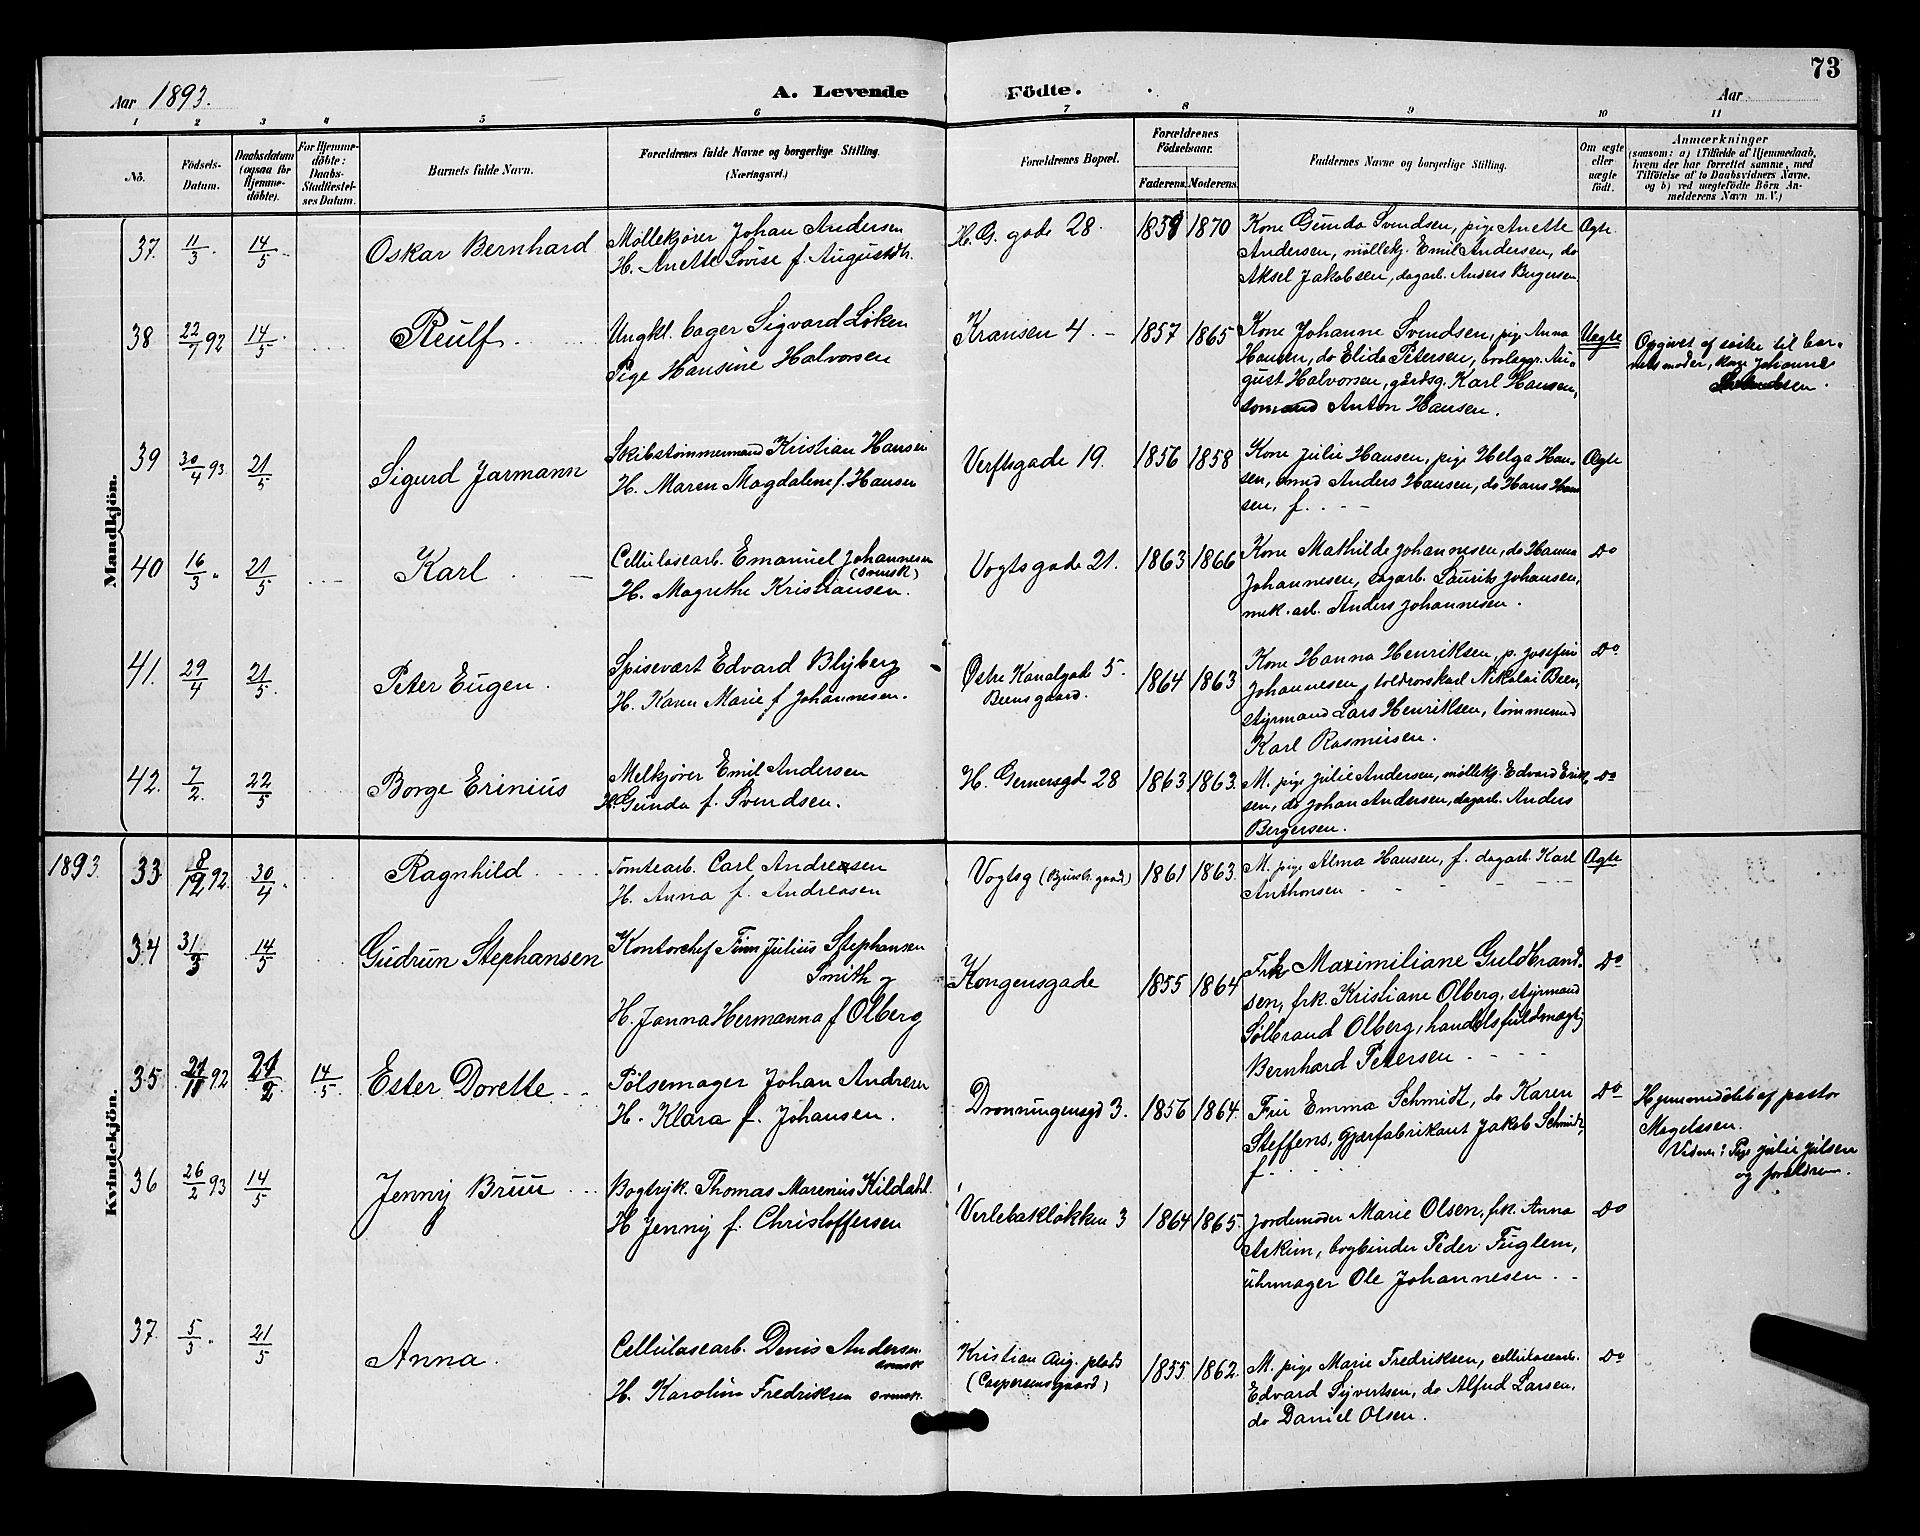 73
Aar 1893.
A. Levende Födte.
Aar
1 2 3 4 5 6 7 8 9 10 11
No.
Födsels-Datum.
Daabsdatum (ogsaa for Hjemme-döbte).
For Hjemme-döbte: Daabs-Stadfæstel-ses Datum.
Barnets fulde Navn.
Forældrenes fulde Navne og borgerlige Stilling.
(Næringsvei.)
Forældrenes Bopæl.
Forældrenes Födselsaar.
Faderens. Moderens.
Faddernes Navne og borgerlige Stilling.
Om ægte eller uægte födt.
Anmærkninger
(saasom: a) i Tilfælde af Hjemmedaab, hvem der har forrettet samme, med Tilföielse af to Daabsvidners Navne, og b) ved uægtefödte Börn An-melderens Navn m. V.)
Mandkjön.
37. 11/3 14/5 Oskar Bernhard
Møllekjører Johan Andersen
H. Anette Lovise f. Augustdtr.
H. G. gade 28. 1859 1870
Kone Gunda Svendsen, pige Anette
Andersen, møllekj. Emil Andersen, do
Aksel Jakobsen, dagarb. Anders Bergersen
Ægte
38 22/7 92 14/5 Reulf
Ungkl. bager Sigvard Løken
Pige Hansine Halvorsen
Kransen 4. 1857 1865
Kone Johanne Svendsen, pige Anna
Hansen, do Elida Petersen, brolæggr. Au-
gust Halvorsen, gårdsg. Karl Hansen,
sømand Anton Hansen.
Uægte
Opgivet af søster til bar-
nets moder, kone Johanne
Svendsen.
39 30/4 93. 21/5 Sigurd Jarmann
Skibstømmermand Kristian Hansen
H. Maren Magdalene f. Hansen
Verftsgade 19. 1856 1858
Kone Julie Hansen, pige Helga Han-
sen, tmmd Anders Hansen, do Hans Han
sen, f.
Ægte
40 16/3 " 21/5 Karl
Cellulosearb. Emanuel Johannesen
(svensk)
H. Magrethe Kristiansen.
Vogtsgade 21. 1863 1866
Kone Mathilde Johannesen, do Hanna
Johannesen, dagarb. Laurits Johansen,
mek. arb. Anders Johannesen.
Do
41. 29/4 21/5. Peter Eugen.
Spisevært Edvard Blyberg
H. Karen Marie f Johannesen.
Østre Kanalgade 5.
Beensgaard.
1864 1863
Kone Hanna Henriksen, p. Josefin
Johannesen, toldrorskarl Nikolai Been,
styrmand Lars Henriksen, tømmermd
Karl Rasmusen.
Do
42. 7/2. 22/5 Borge Erinius
Melkjører Emil Andersen
H. Gunda f. Svendsen.
H. Gernersgd 28 1863 1863.
M. pige Julie Andersen, møllekj. Edvard Erik
sen, do Johan Andersen, dagarb. Anders
Bergersen.
Do
1893.
Kvindekjön.
33. 8/12 92. 30/4. Ragnhild
Tomtearb. Carl Andresen
H. Anna f. Andreasen
Vogtsg 1861 1863.
M. pige Alma Hansen, f. dagarb. Karl
Anthonsen
Ægte
34 31/3 14/5 Gudrun Stephansen
Kontorchef Finn Julius Stephansen
Smith og
H. Janna Hermanna f Olberg
Kongensgade 1855 1864
Frk Maximiliane Guldbrand-
sen, frk. Kristiane Olberg, styrmand
Sølbrand Olberg, handelsfuldmægtig
Bernhard Petersen
Do
35 21/11 92 21/2 14/5 Ester Dorette
Pølsemager Johan Andresen
H. Klara f. Johansen.
Dronningensgd 3. 1856 1864.
Fru Emma Schmidt, do Karen
Steffens, gjærfabrikant Jakob Schmidt,
f.
Do
Hjemmedøbt af pastor
Magelssen.
Vidner: Pige Julie Julsen
og forældrene.
36 26/2 93 14/5 Jenny Bruu
Bogtryk. Thomas Marenius Kildahl.
H Jenny f. Christoffersen
Verlebakløkken 3 1864 1865.
Jordemoder Marie Olsen, frk. Anna
Askim, bogbinder Peder Fuglem,
uhrmager Ole Johannesen
Do
37. 5/3 " 21/5 Anna.
Cellulosearb. Denis Andersen
svensk
H. Karolin Fredriksen svensk.
Kristian Aug. plads
(Caspersensgaard)
1855 1862.
M. pige Marie Fredriksen, cellulosearb.
Edvard Syvertsen, do Alfred Larsen,
do Daniel Olsen.
Do